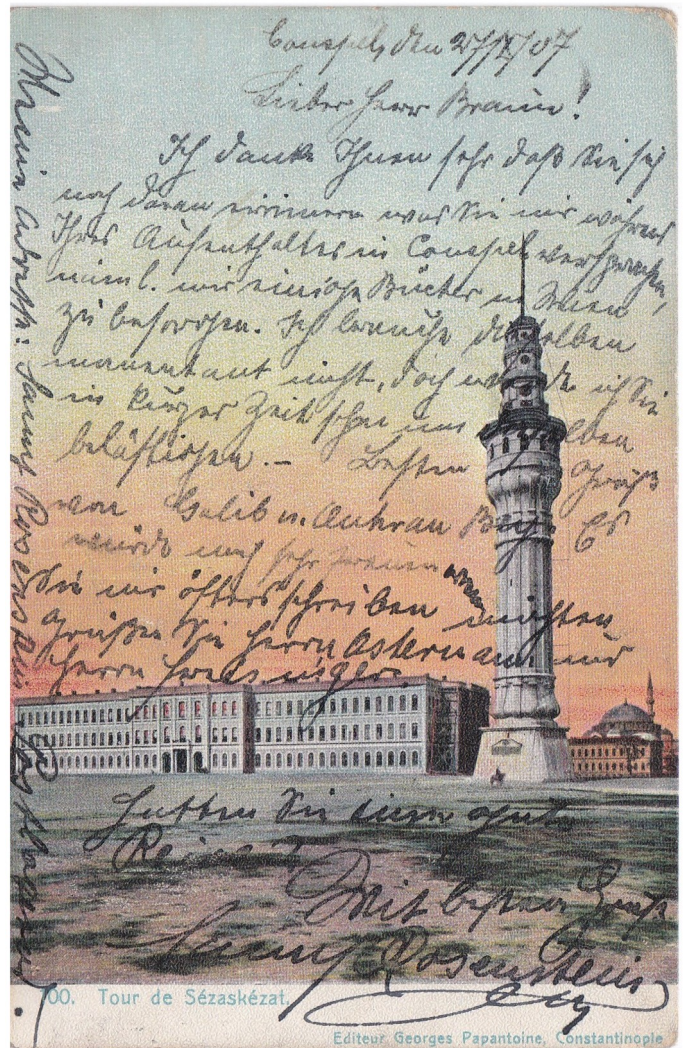 Conspel, den 27/X/07
Lieber Herr Braun!
Ich danke Ihnen sehr daß Sie sich
noch daran erinnern was Sie mir während
Ihres Aufenthaltes in Conspel versprachen,
nüml. mir einige Bücher in Wien
zu besorgen. Ich brauche dieselben
momentant nicht, doch werde ich Sie
in kurzer Zeit schon um dieselben
belästigen. – Besten Gruß
von Galib u. Beye Es
würde mich sehr freuen wenn
Sie mir öfters schreiben möchten
Grüßen Sie Herrn Ostermann und
Herrn
Hatten Sie eine gute
Reise?
Mit besten Gruß
Rosenstein
Meine Adresse: Rosenstein
700. Tour de Sézaskézat.
Editeur Georges Papantoine, Constantinople